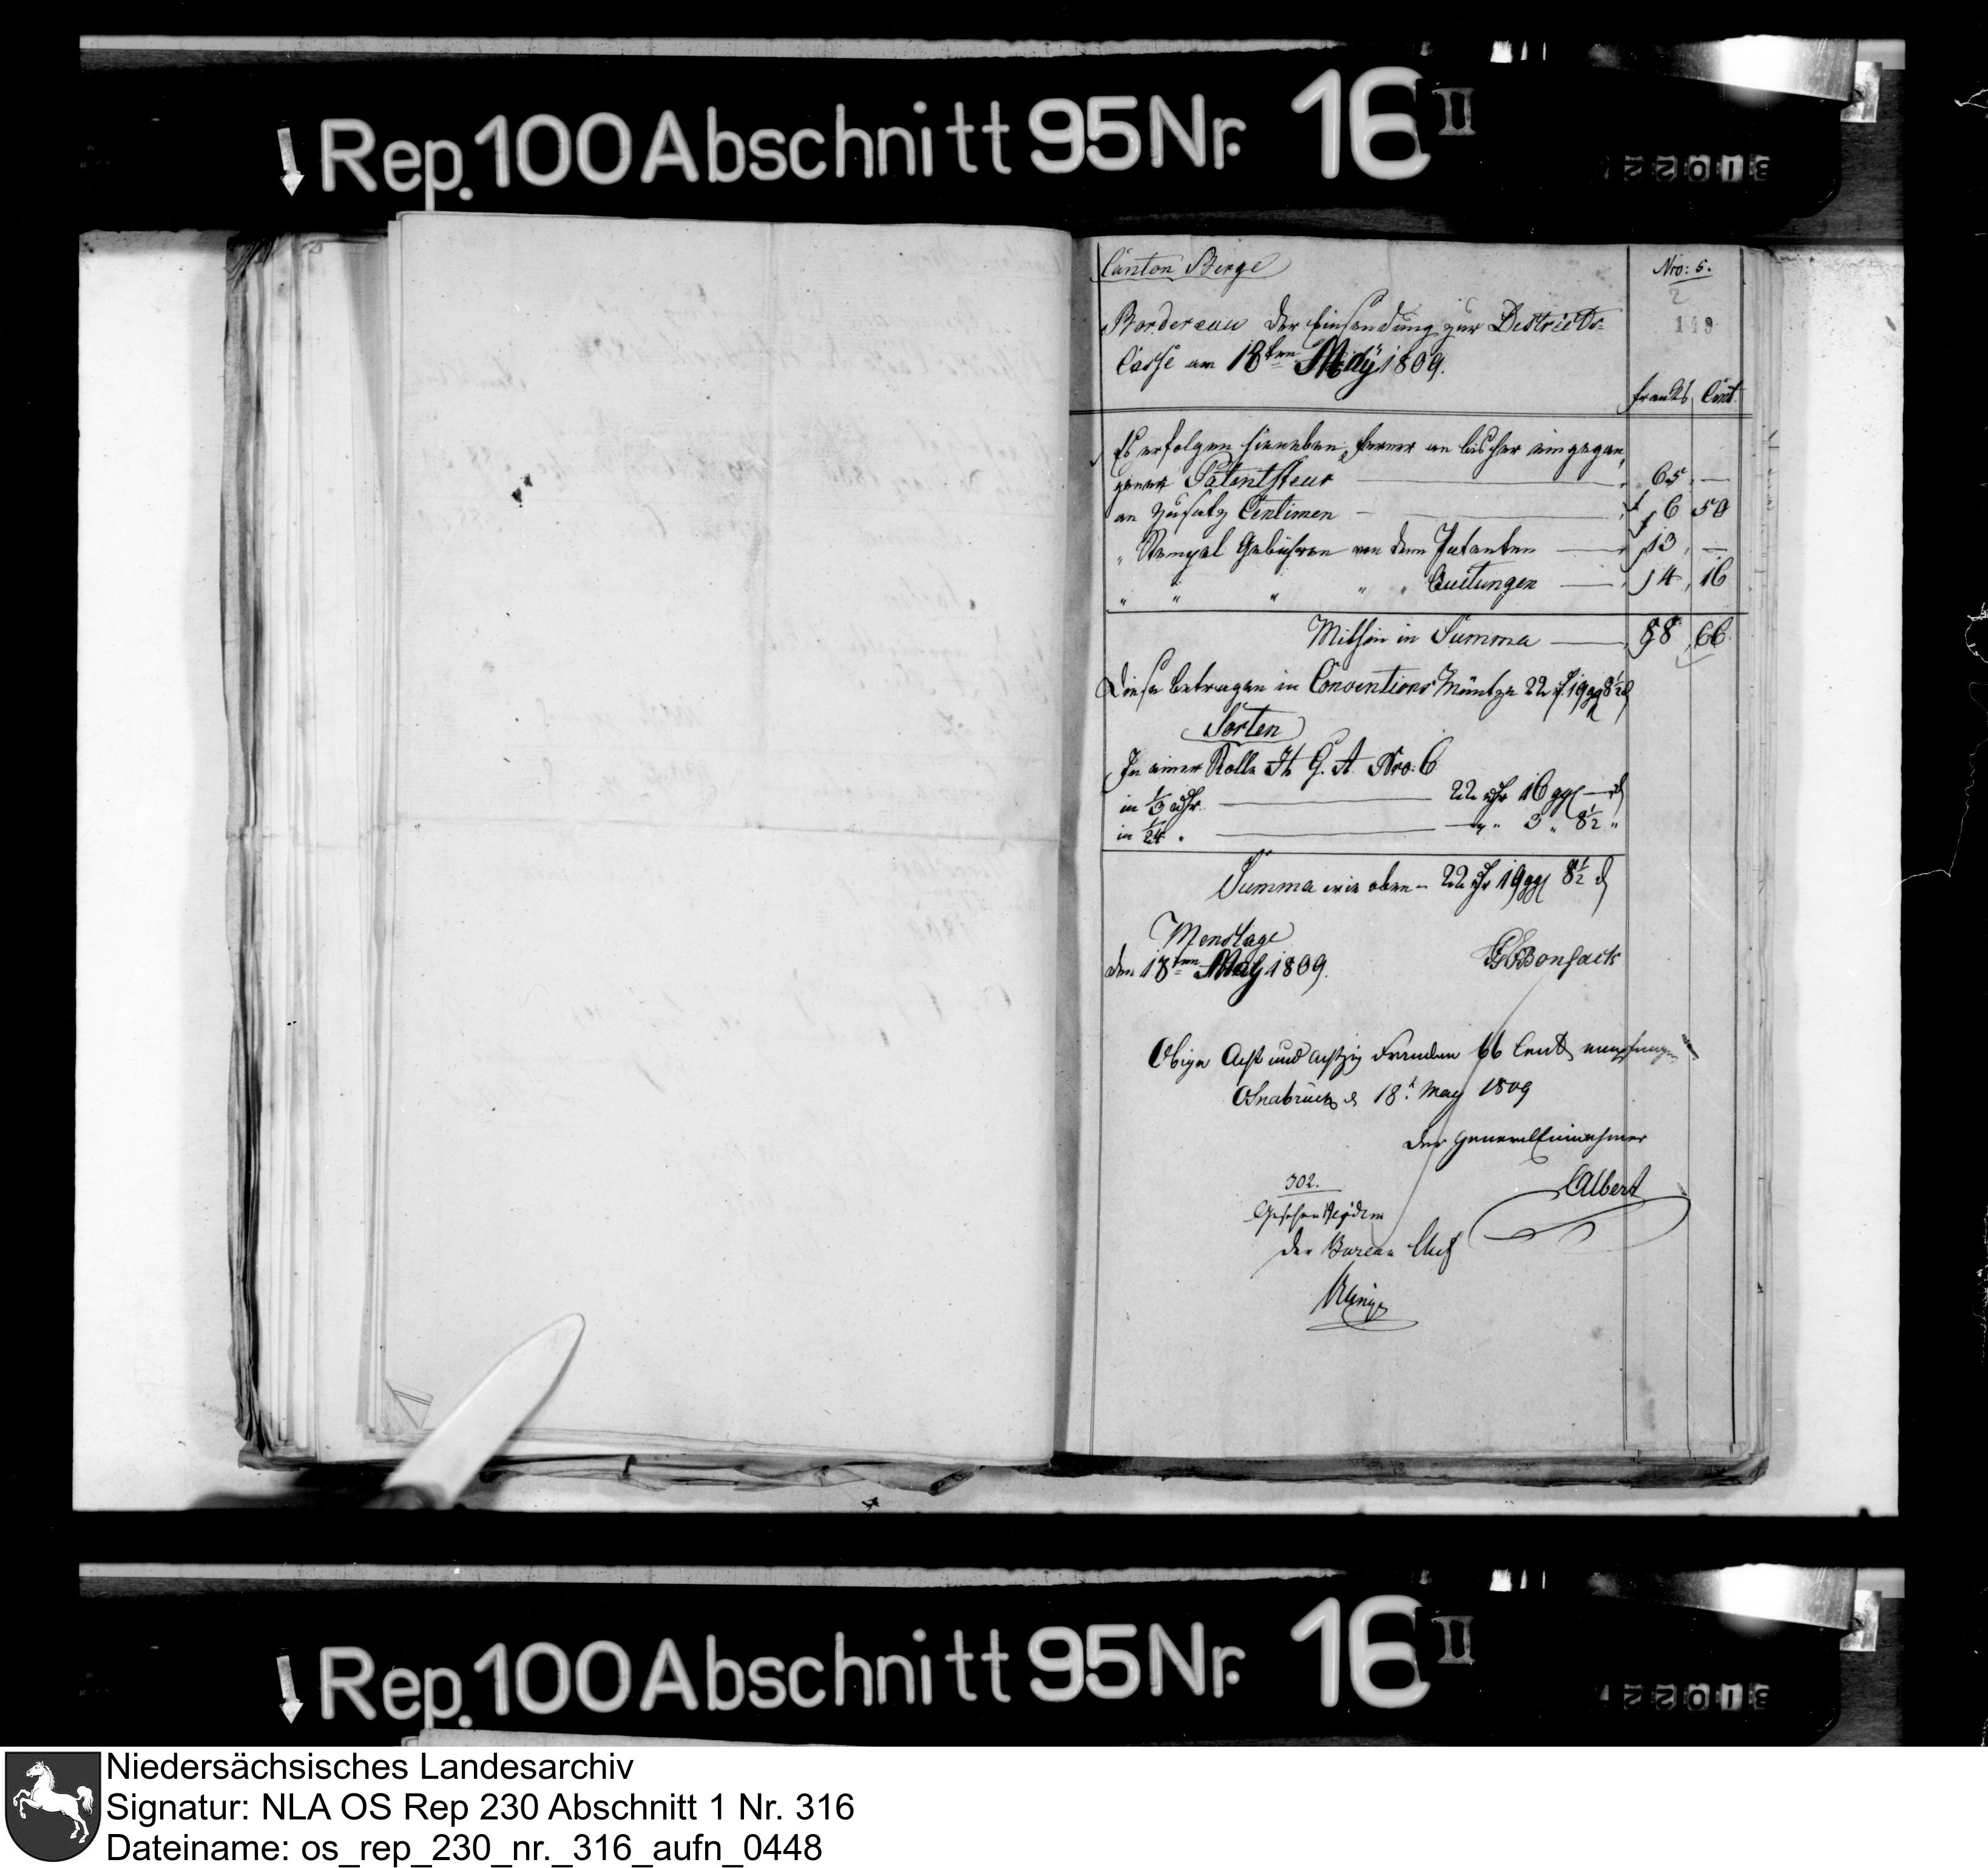 Rep. 100 Abschnitt 95 Nr. 16 II
31022
Canton Berge
Nro: 5.
2
149
Bordereau der Einsendung zur Districts-
Casse am 18ten May 1809.
Franks Cent.
Es erfolgen hieneben ferner an bisher eingegan-
gener Patentsteur 65 —
an Zusatz Centimen 6 50
" Stempel Gebühren von denn Patenten 13 —
" " " " " Quitungen 4 16
Mithin in Summa 88 66
Diese betragen in Conventions Müntze 22 rthr 19 ggl 8½ d
Sorten
In einer Rolle H. G. A. Nro: 6
in 1/3 rthr 22 rthr 16 ggl — d
in 1/24 " — " 3 " 8½ "
Summa wie oben - 22 rthr 19 ggl 8½ d
Menslage
den 18ten May 1809.
Bonsack
Obige Acht und achtzig Franken 66 Cent empfangen
Osnabrück d 18t May 1809
Der General Einnehmer
Albert
302.
Gesehen
Der Bureau Chef
Rep. 100 Abschnitt 95 Nr. 16 II
31022
Niedersächsisches Landesarchiv
Signatur: NLA OS Rep 230 Abschnitt 1 Nr. 316
Dateiname: os_rep_230_nr._316_aufn_0448